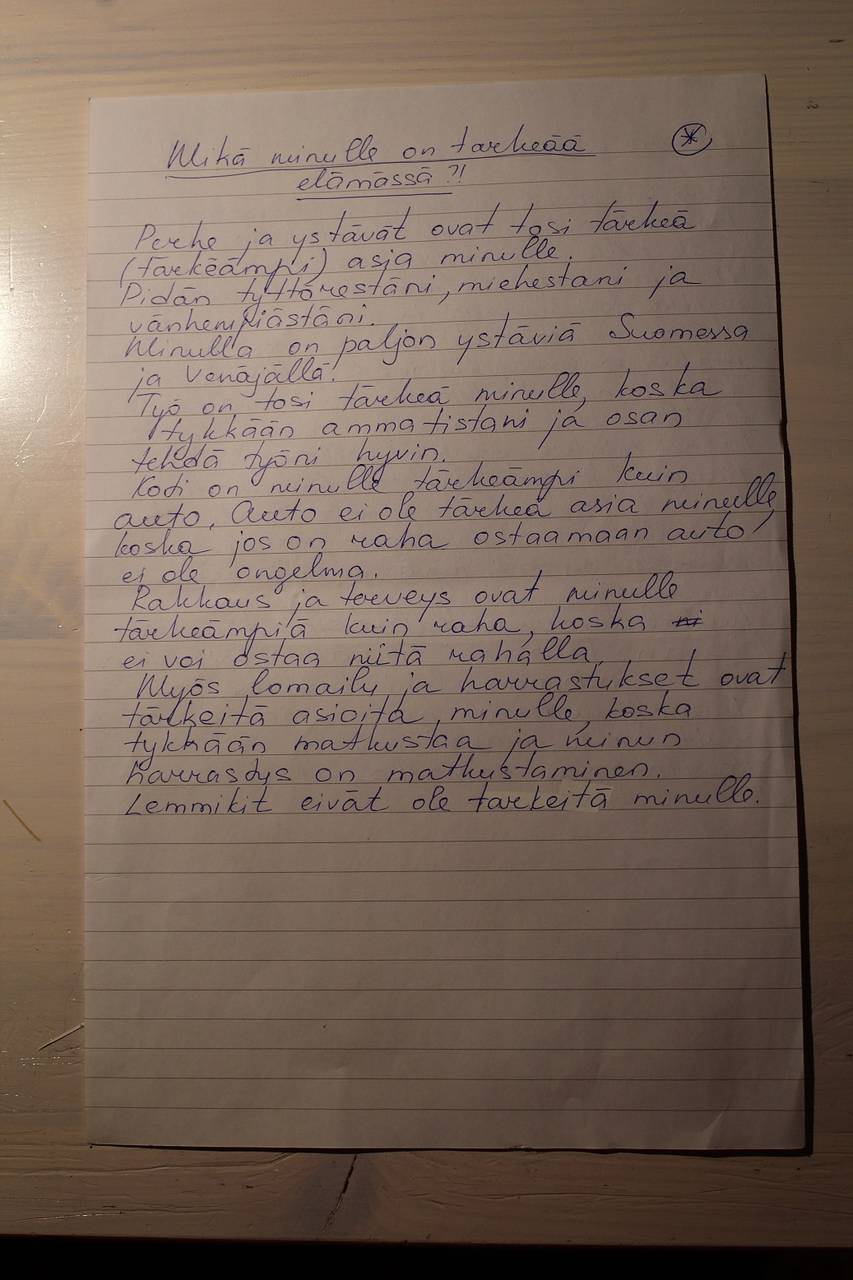 Mikä minulle on tarkeää
elämässä?!
Perhe ja ystävät ovat tosi tärkeä
(tärkeämpi) asia minulle.
Pidän tyttörestäni, miehestani ja
vänhempiästäni.
Minulla on paljon ystäviä Suomessa
ja Venäjällä.
Työ on tosi tärkeä minulle, koska
tykkään ammatistani ja osan
tehdä työni hyvin.
Kodi on minulle tärkeämpi kuin
auto. Auto ei ole tärkeä asia minulle,
koska jos on raha ostaamaan auto
ei ole ongelma.
Rakkaus ja terveys ovat minulle
tärkeämpiä kuin raha, koska ni
ei voi ostaa niitä rahalla.
Myös lomailu ja harrastukset ovat
tärkeitä asioita minulle, koska
tykkään matkustaa ja minun
harrastys on matkustaminen.
Lemmikit eivät ole tarkeitä minulle.